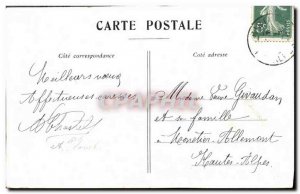 CARTE POSTALE
Côté correspondance
Côté adresse
Meilleurs vœux
Affectueuses caresses
Madame Veuve Givaudan
et sa famille
Monêtier-Allemont
Hautes-Alpes